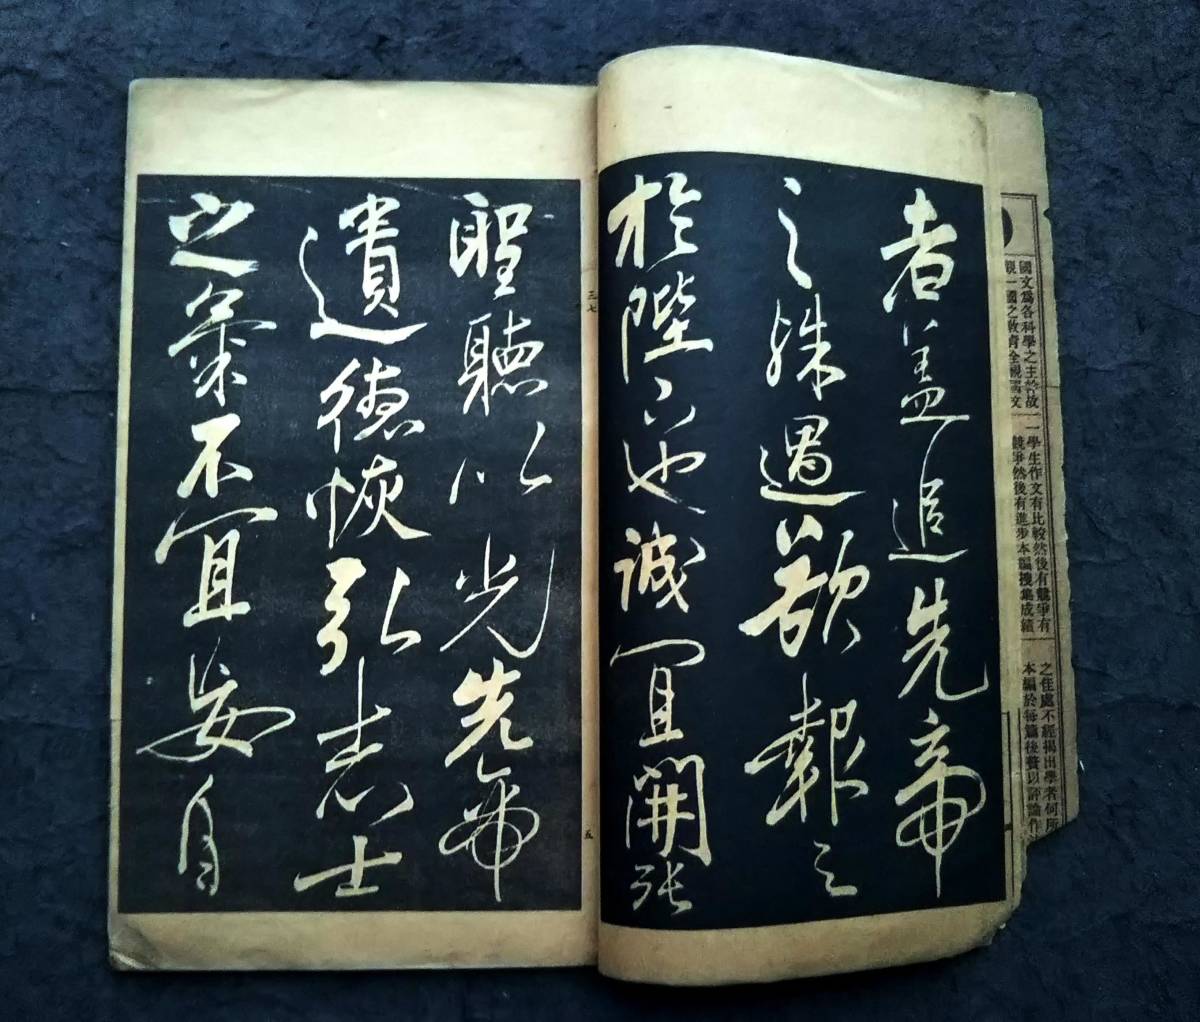 國文爲各科學之主故
覘一國之教育全視國文
一學生作文有比較然後有競爭有
競爭然後有進步本編搜集成績
之佳處不經揭出學者何所
本編於每篇後贅以評論作
者盖追先帝
之殊遇欲報之
於陛下也誠宜開張
三七
五
聖聽以光先帝
遺德恢弘志士
之氣不宜妄自